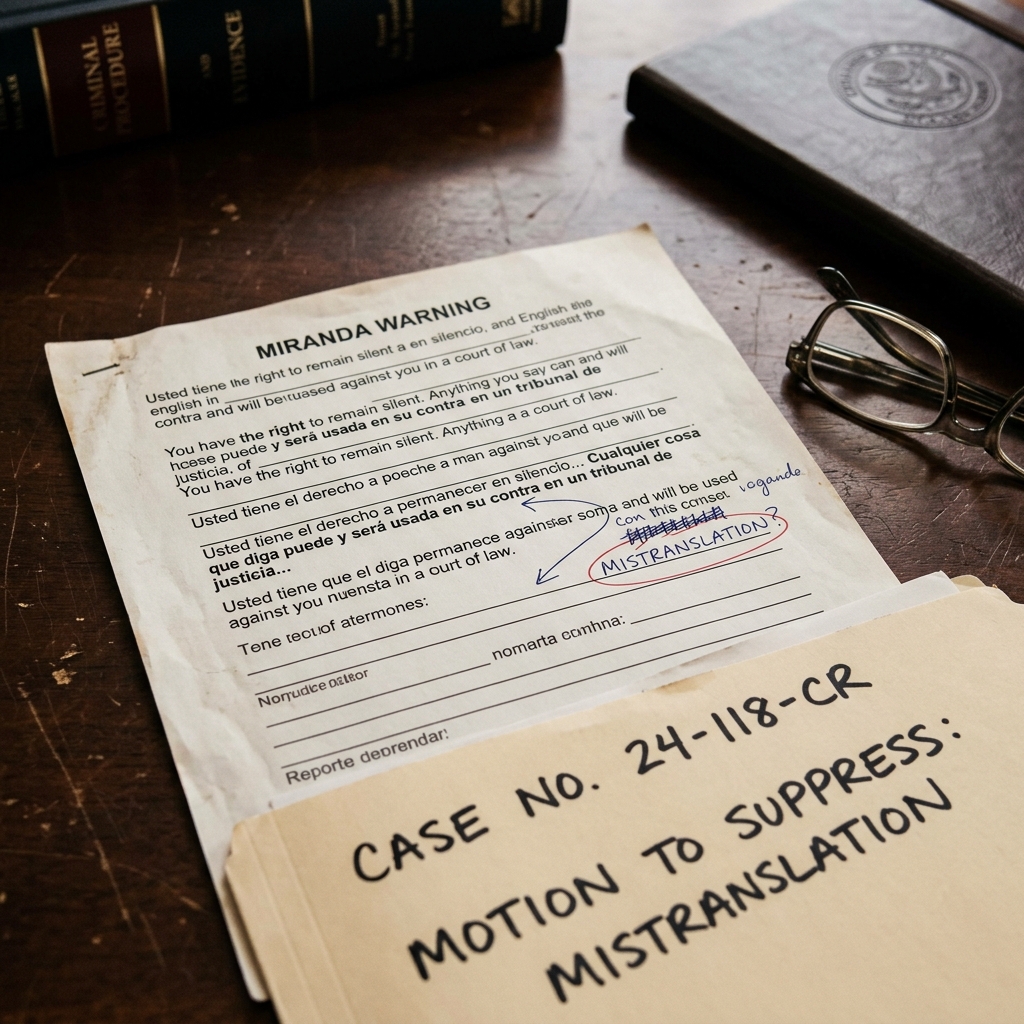 CRIMINAL
PROCEDURE
AND
EVIDENCE
MIRANDA WARNING
Usted tiene the right to remain silent a en silencio, and English the
english in ____ the
contra and will be used against you in a court of law.
You have the right to remain silent. Anything you say can and will
hcese puede y será usada en su contra en un tribunal de
justicia. of
You have the right to remain silent. Anything a a court of law.
Usted tiene el derecho a poeche a man against yoand que will be
Usted tiene el derecho a permanecer en silencio... Cualquier cosa
que diga puede y será usada en su contra en un tribunal de
justicia...
Usted tiene que el diga permanece against soma and will be used
against you in a ourt of law.
con this
MISTRANSLATION?
Tene
nomarta
Reporte
CASE NO. 24-118-CR
MOTION TO SUPPRESS:
MISTRANSLATION